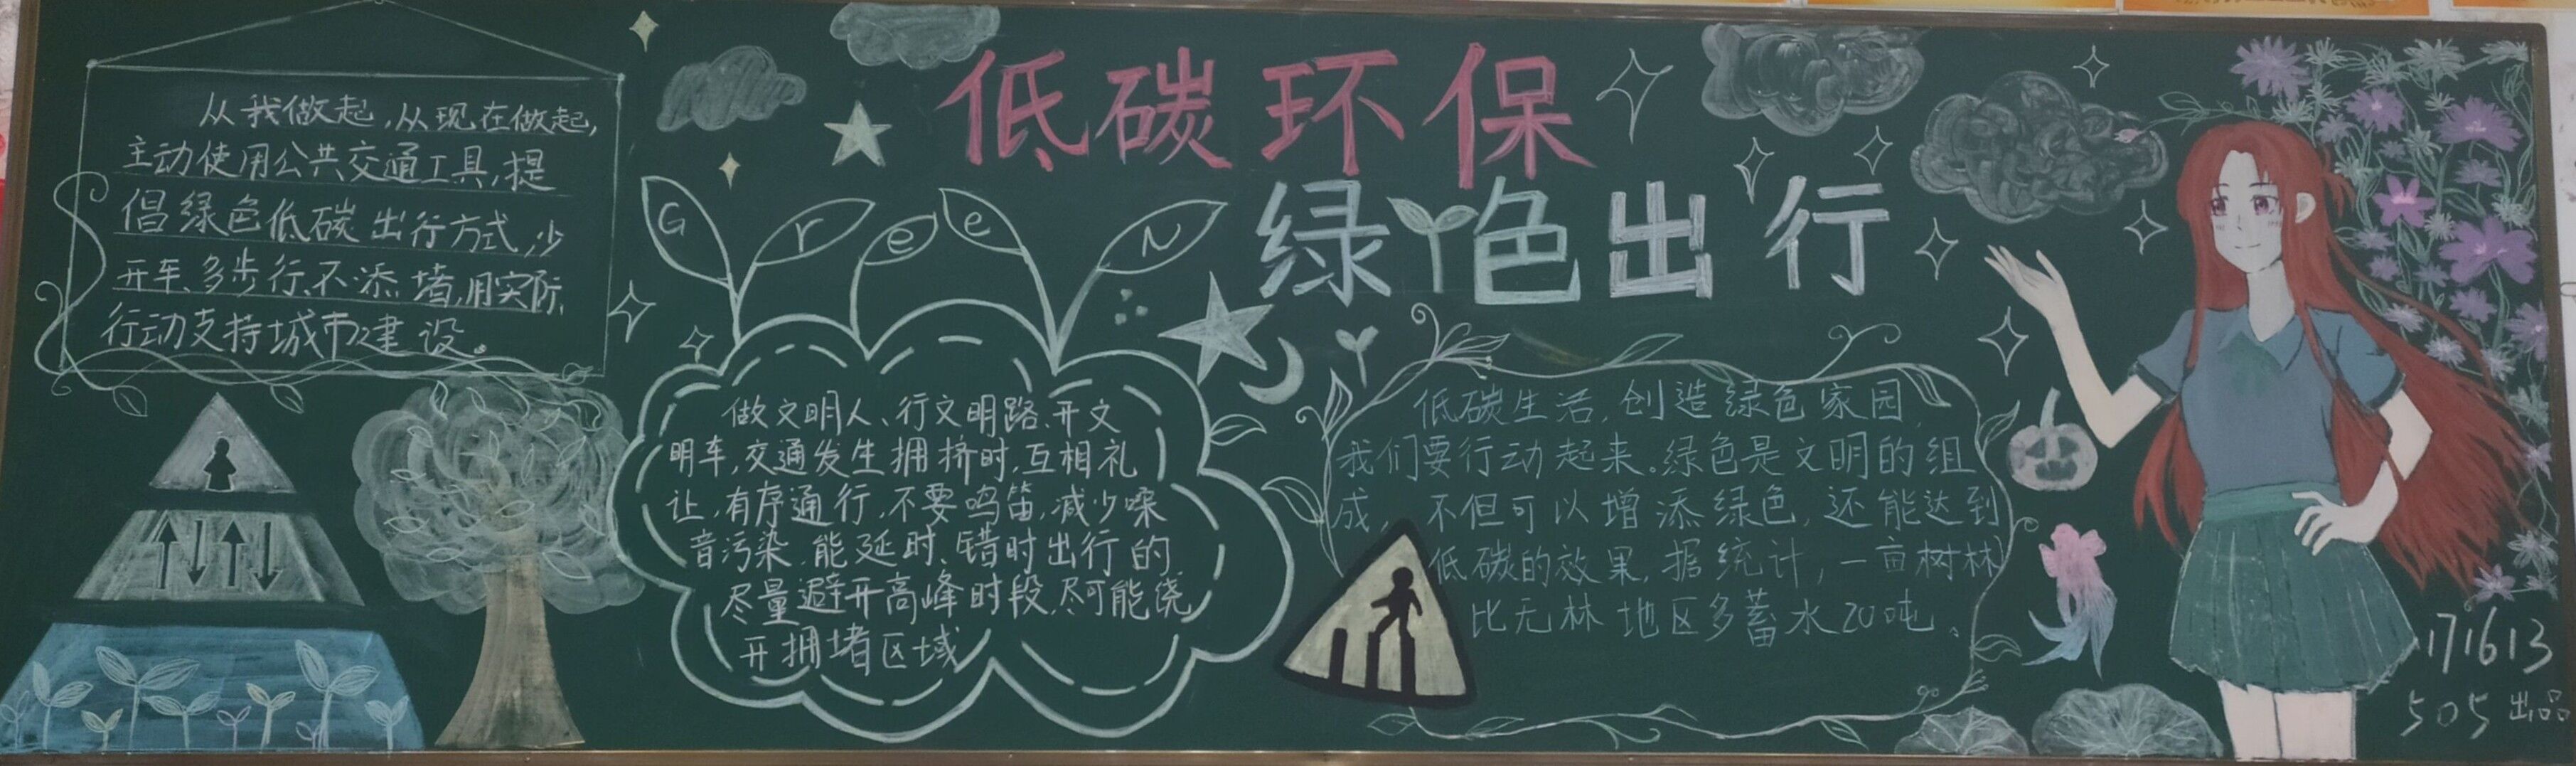 低碳环保
绿色出行
从我做起,从现在做起,
主动使用公共交通工具,提
倡绿色低碳出行方式,少
开车、多步行、不添堵,用实际
行动支持城市建设。
GreeN
做文明人、行文明路、开文
明车,交通发生拥挤时,互相礼
让,有序通行,不要鸣笛,减少噪
音污染,能延时、错时出行的
尽量避开高峰时段,尽可能绕
开拥堵区域
低碳生活,创造绿色家园,
我们要行动起来。绿色是文明的组
成,不但可以增添绿色,还能达到
低碳的效果,据统计,一亩树林
比无林地区多蓄水20吨。
171613
505出品